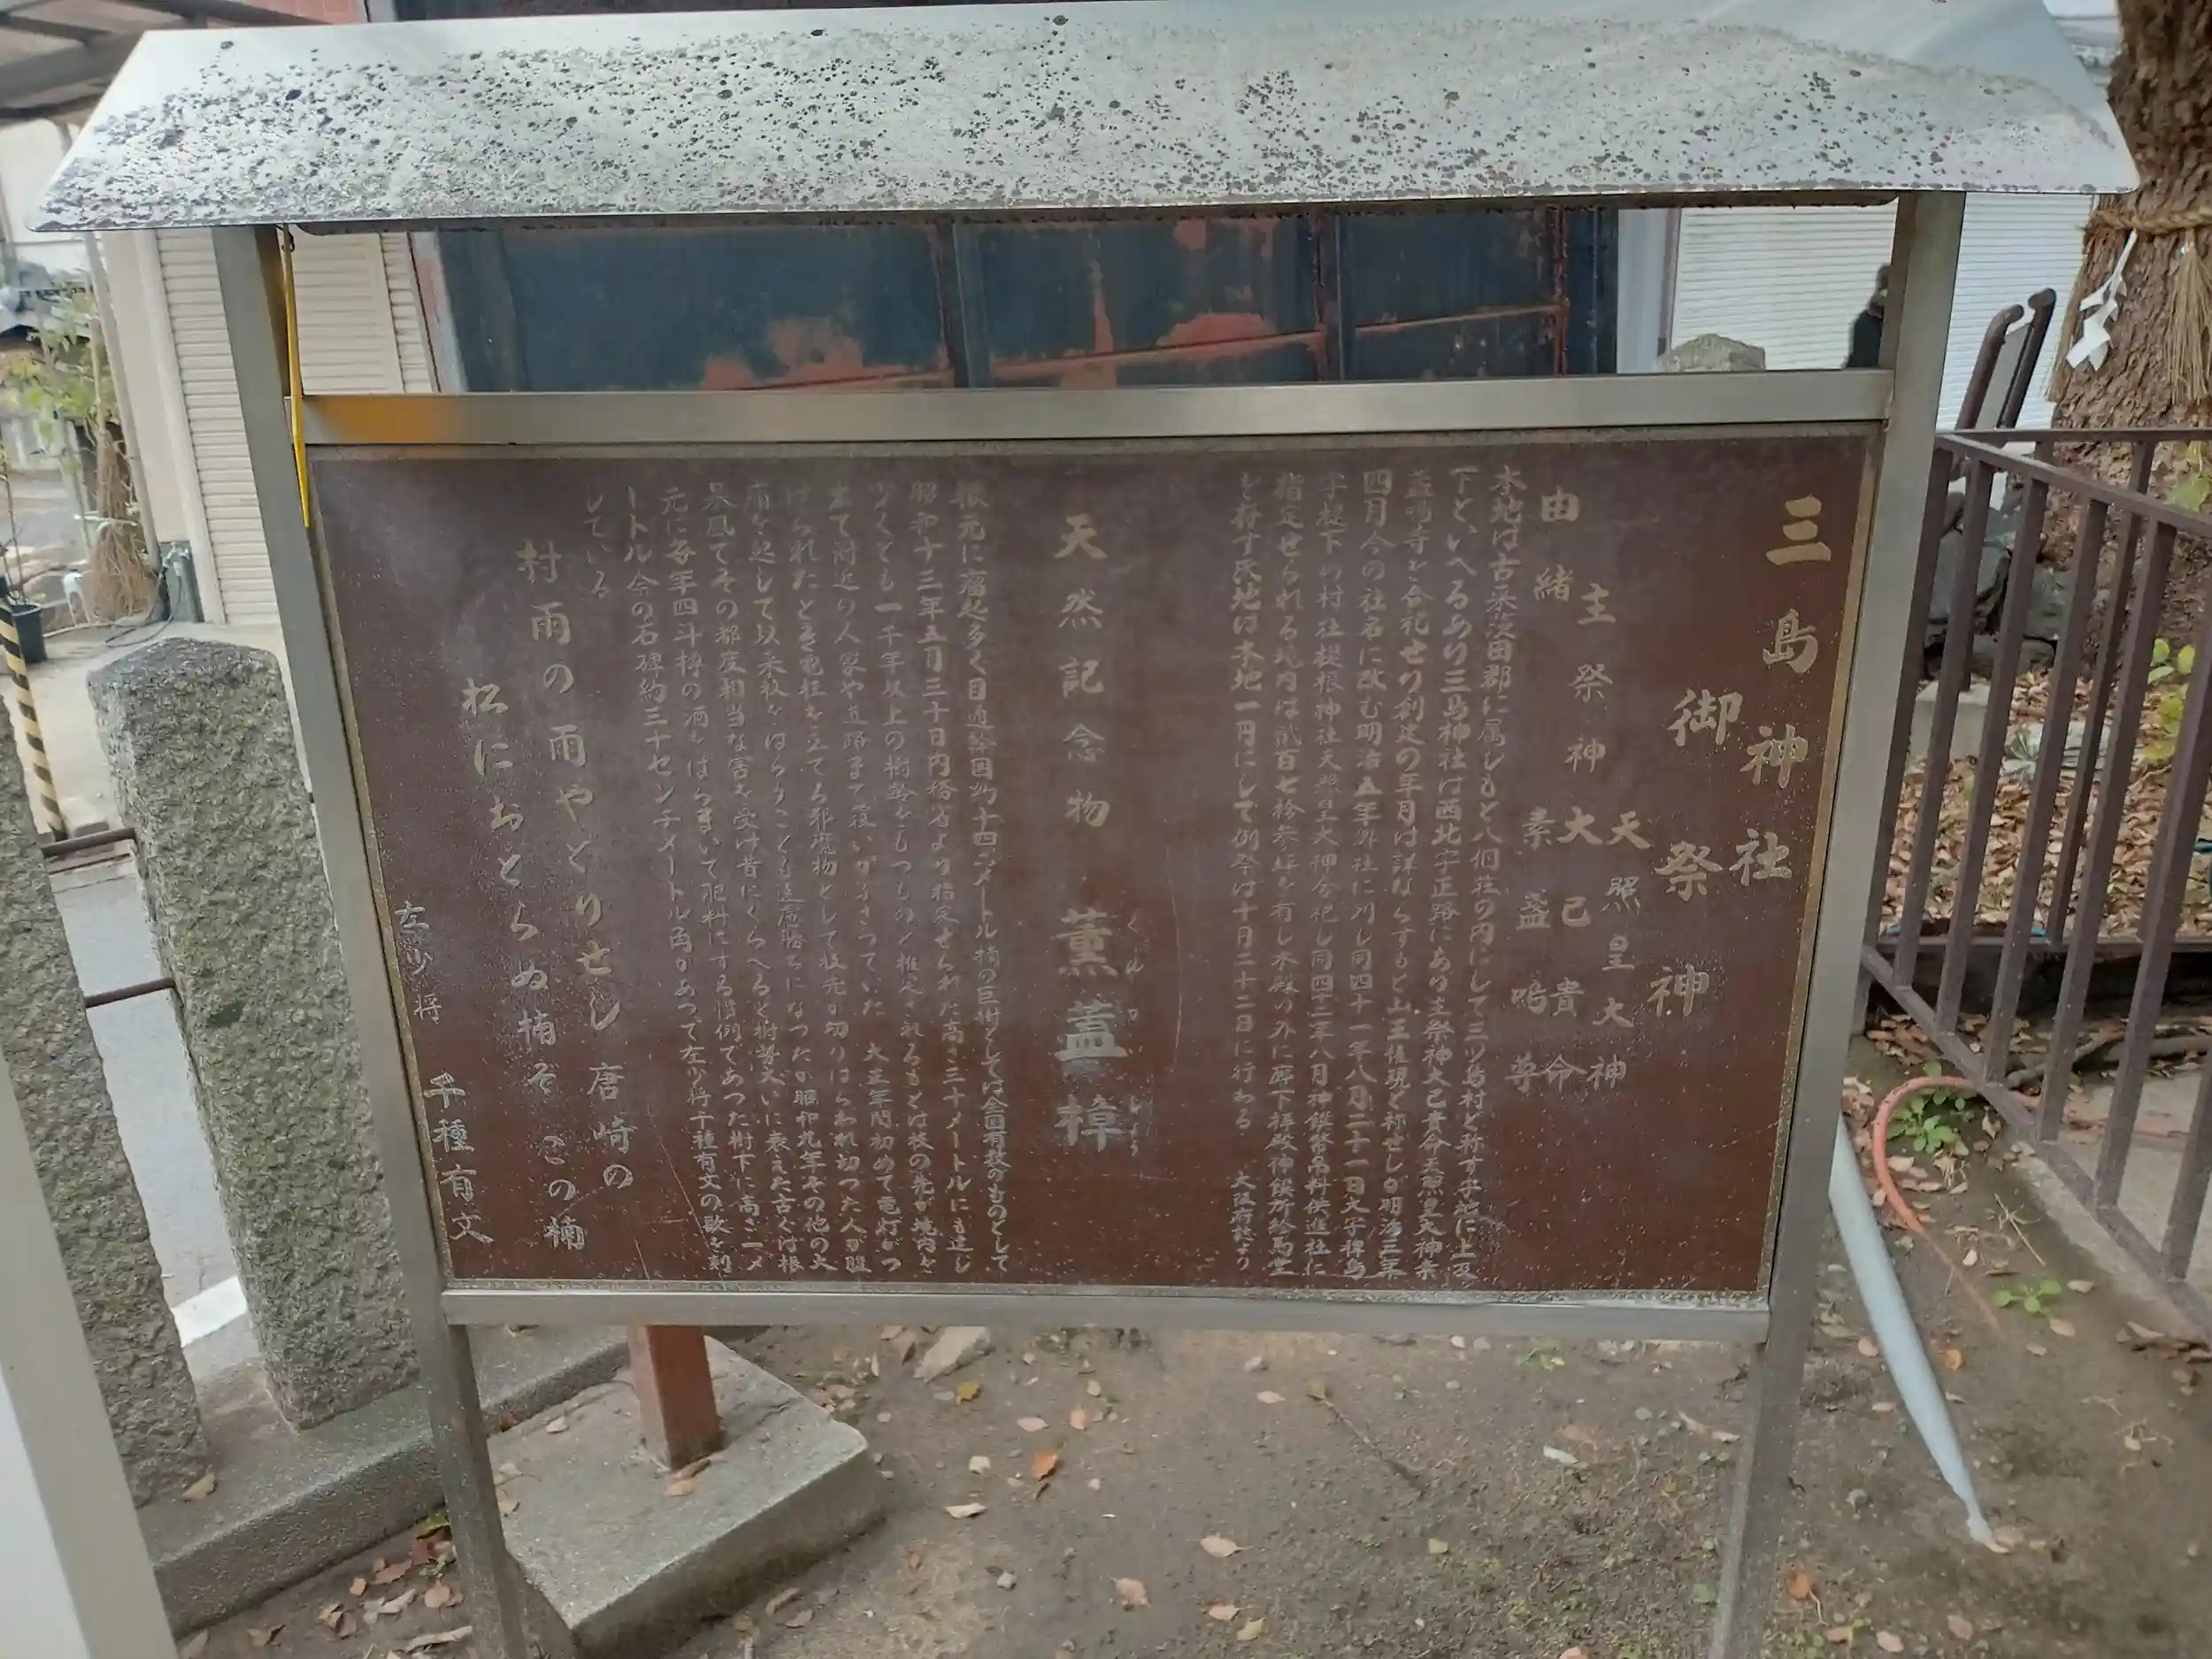 三島神社
御祭神
天照皇大神
主祭神 大己貴命
素盞嗚尊
由緒
本地は古来茨田郡に属しもと八個荘の内にして三ツ島村と称す字地に上及
下といへるあり三島神社は西北字正路にあり主祭神大己貴命天照皇大神素
盞嗚尊を合祀せり創建の年月は詳ならずもと山王権現と称せしが明治三年
四月今の社名に改む明治五年外社に列し同四十一年八月二十一日大字稗島
字堤下の村社堤根神社天照皇大神合祀し同四二年八月神饌幣帛料供進社に
指定せられる境内は貮百七拾参坪を有し本殿の外に幣下拝殿神饌所絵馬堂
を存す氏地は本地一円にして例祭は十月二十二日に行わる 大阪府誌より
天然記念物 薫蓋樟
くんがいしょう
根元に瘤起多く目通幹囲約十四メートル楠の巨樹としては全国有数のものとして
昭和十三年五月三十日内務省より指定せられた高さ三十メートルにも達し
少くとも一千年以上の樹齢をもつものと推定されるもとは枝の先が境内を
立て附近の人家や道路まで蓋いかぶさっていた 大正年間初めて電灯がつ
けられたとき電柱を立てる邪魔物として枝先が切りはらわれ切った人が腹
痛を起して以来枝をはらうことも遠慮勝ちになったが昭和九年その他の大
暴風でその都度相当な害を受け昔にくらべると樹勢大いに衰えた古くは根
元に毎年四斗樽の酒をばらまいて肥料にする慣例であった樹下に高さ一メ
ートル余の石碑約三十センチメートル角があって左少将千種有文の歌を刻
している
村雨の雨やどりせし 唐崎の
松におとらぬ楠ぞこの楠
左少将 千種有文